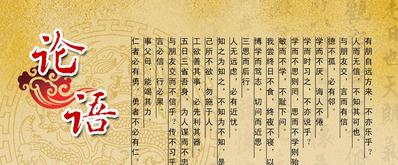 论语
有朋自远方来，不亦乐乎？
与朋友交，言而有信。
人而无信，不知其可也。
德不孤，必有邻。
学而不厌，诲人不倦。
学而时习之，不亦说乎？
学而不思则罔，思而不学则殆
敏而不学，不耻下问
我尝终日不食，终夜不寝，以
博学而笃志，切问而近思
三思而后行
人无远虑，必有近忧。
知之为知之，不知为不知，是
己所不欲，勿施于人
工欲善其事，必先利其器
五日三省吾身，为人谋而不忠
与朋友交而不信乎？传不习乎
言必信，行必果
事父母，能竭其力
仁者必有勇，勇者不必有仁